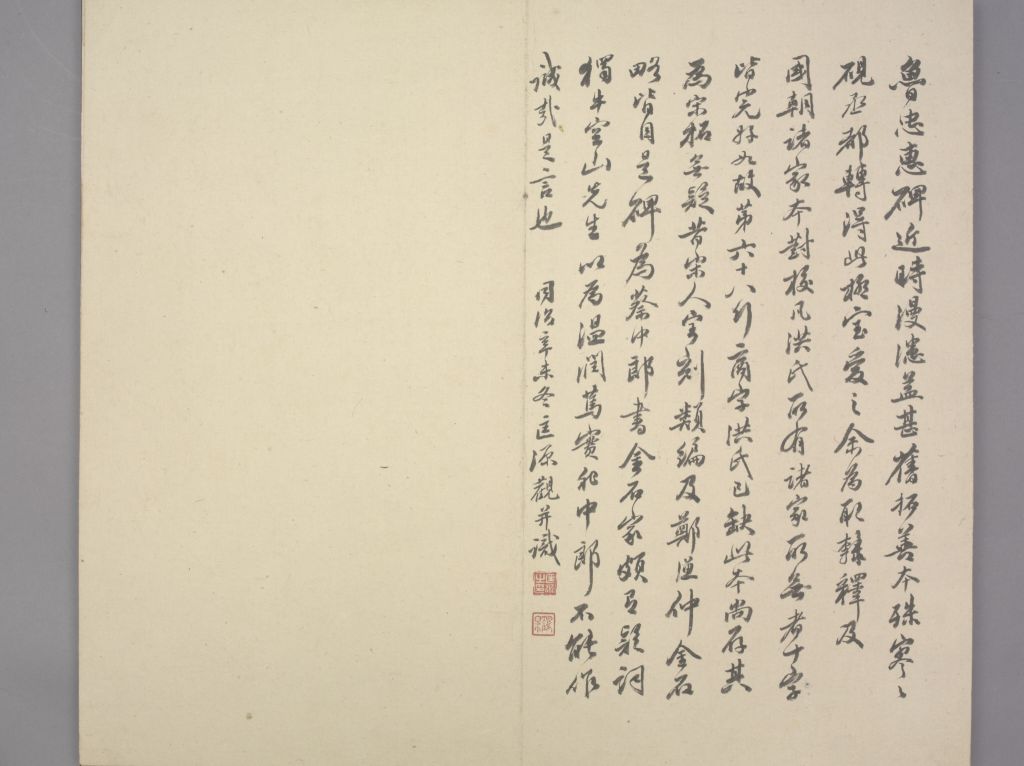 魯忠惠碑近時漫漶益甚舊拓善本殊寥〻
硯丞都轉得此極寶愛之余為取隸釋及
國朝諸家本對校凡洪氏所有諸家所無者十字
皆完好如故第六十八行商字洪氏已缺此本尚存其
為宋拓無疑昔宋人字刻類編及鄭漁仲金石
略皆目是碑為蔡中郎書金石家頗有疑詞
獨牛空山先生以為溫潤篤實非中郎不能作
誠哉是言也 同治辛未冬匡源觀并識